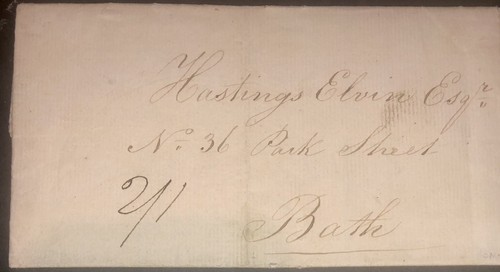 Hastings Elvin Esqr.
No. 36 Park Street
2/1
Bath